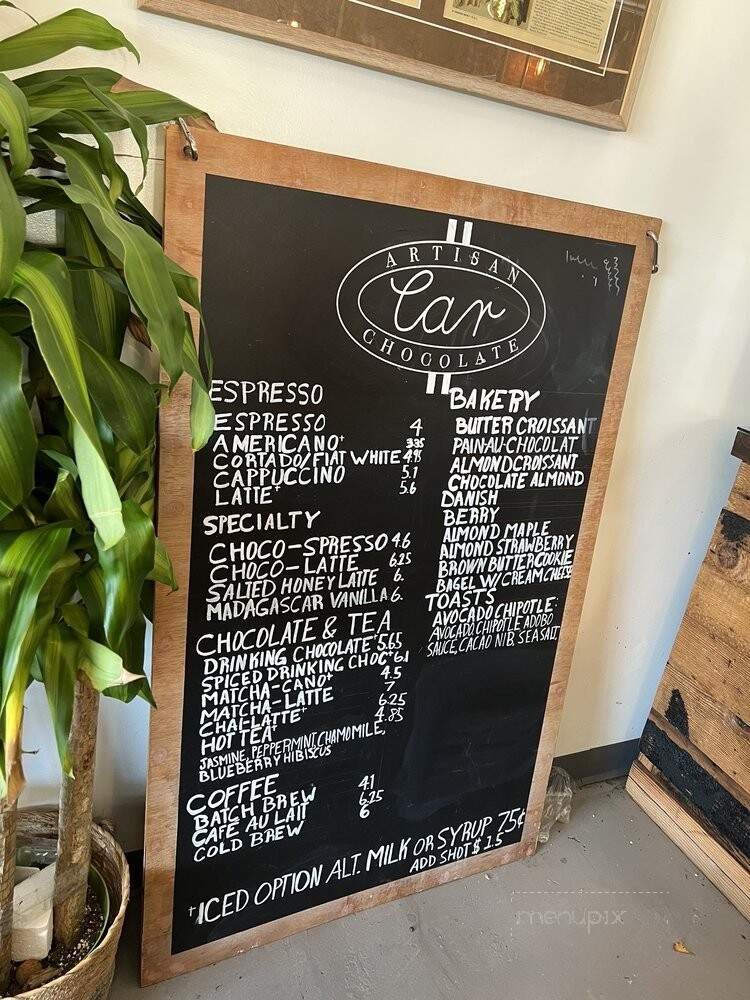 ARTISAN
Car
CHOCOLATE
ESPRESSO
ESPRESSO 4
AMERICANO+ 3.35
CORTADO/FlAT WHITE 4.95
CAPPUCCINO 5.1
LATTE+ 5.6
SPECIALTY
CHOCO-SPRESSO 4.6
CHOCO-LATTE 6.25
SALTED HONEY LATTE 6.
MADAGASCAR VANILLA 6.
CHOCOLATE & TEA
DRINKING CHOCOLATE+ 5.65
SPICED DRINKING CHOC+ 6.1
MATCHA-CANO+ 4.5
MATCHA-LATTE 7
CHAI-LATTE+ 6.25
HOT TEA+ 4.85
JASMINE, PEPPERMINT, CHAMOMILE,
BLUEBERRY HIBISCUS
COFFEE
BATCH BREW 4.1
CAFE AU LAIT 6.25
COLD BREW 6
BAKERY
BUTTER CROISSANT
PAIN-AU-CHOCOLAT
ALMOND CROISSANT
CHOCOLATE ALMOND
DANISH
BERRY
ALMOND MAPLE
ALMOND STRAWBERRY
BROWN BUTTER COOKIE
BAGEL W/ CREAM CHEESE
TOASTS
AVOCADO CHIPOTLE:
AVOCADO, CHIPOTLE ADOBO
SAUCE, CACAO NIB, SEA SALT
+ICED OPTION ALT. MILK OR SYRUP 75¢
ADD SHOT $1.5
menupix